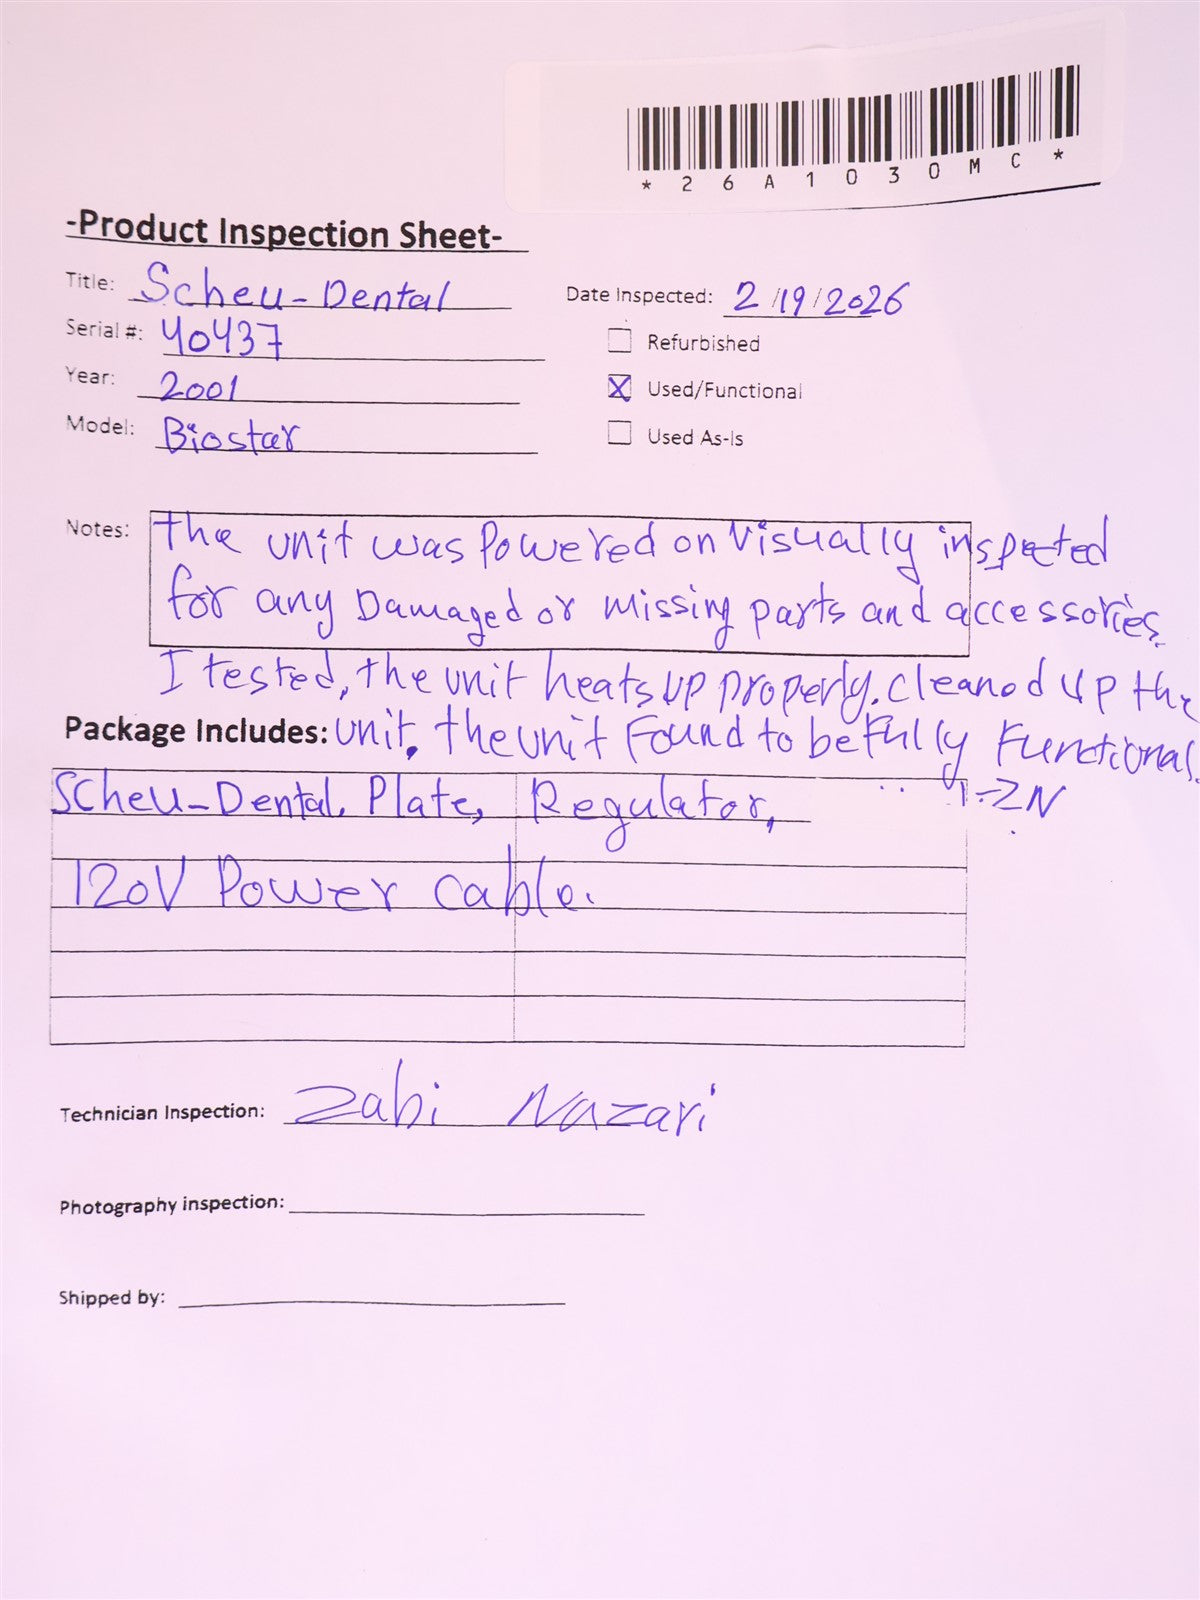 * 2 6 A 1 0 3 0 M C *
-Product Inspection Sheet-
Title: Scheu-Dental
Date Inspected: 2/19/2026
Serial #: 40437
Refurbished
Year: 2001
X Used/Functional
Model: Biostar
Used As-Is
Notes: The unit was powered on visually inspected
for any Damaged or missing parts and accessories.
I tested, the unit heats up properly. cleaned up the
Package Includes: unit. the unit Found to be Fully Functional.
-ZN
Scheu-Dental, Plate, Regulator,
120V Power cable.
Technician Inspection: Zabi Nazari
Photography inspection:
Shipped by: